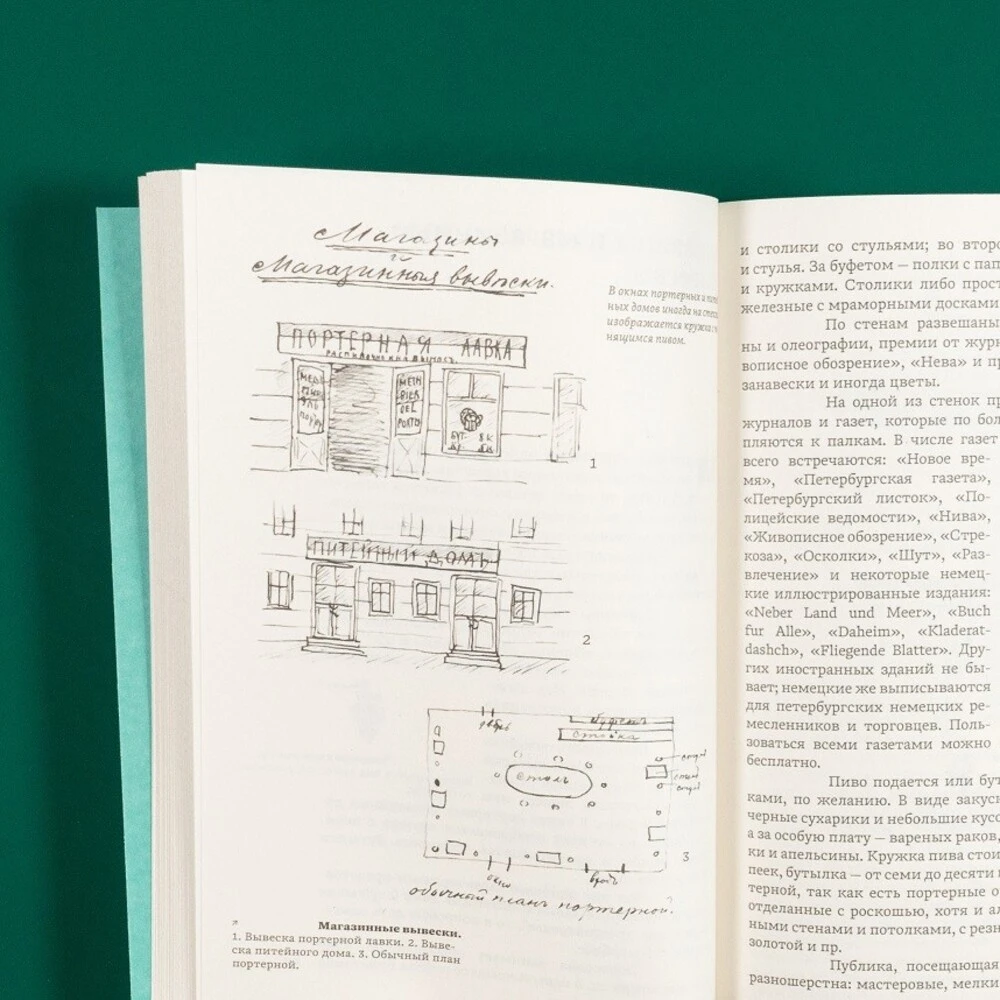 Магазины
Магазинныя вывѣски.
ПОРТЕРНАЯ ЛАВКА
В окнах портерных и
ных домов иногда на
изображается кружка
нящимся пивом.
1
ПИТЕЙНЫЙ ДОМЪ
2
буфетъ
Стойка
Столъ
3
обычный планъ портерной.
Магазинные вывески.
1. Вывеска портерной лавки. 2. Выве-
ска питейного дома. 3. Обычный план
портерной.
и столики со стульями; во второ
и стулья. За буфетом — полки с пап
и кружками. Столики либо прост
железные с мраморными досками
По стенам развешаны
ны и олеографии, премии от журн
вописное обозрение», «Нева» и пр
занавески и иногда цветы.
На одной из стенок пр
журналов и газет, которые по бол
пляются к палкам. В числе газет
всего встречаются: «Новое вре-
мя», «Петербургская газета»,
«Петербургский листок», «По-
лицейские ведомости», «Нива»,
«Живописное обозрение», «Стре-
коза», «Осколки», «Шут», «Раз-
влечение» и некоторые немец-
кие иллюстрированные издания:
«Neber Land und Meer», «Buch
fur Alle», «Daheim», «Kladerat-
dashch», «Fliegende Blatter». Дру-
гих иностранных зданий не бы-
вает; немецкие же выписываются
для петербургских немецких ре-
месленников и торговцев. Поль-
зоваться всеми газетами можно
бесплатно.
Пиво подается или бут
ками, по желанию. В виде закус
черные сухарики и небольшие кусо
а за особую плату — вареных раков,
ки и апельсины. Кружка пива стои
пеек, бутылка — от семи до десяти
терной, так как есть портерные о
отделанные с роскошью, хотя и ал
ными стенами и потолками, с резн
золотой и пр.
Публика, посещающая
разношерстна: мастеровые, мелки